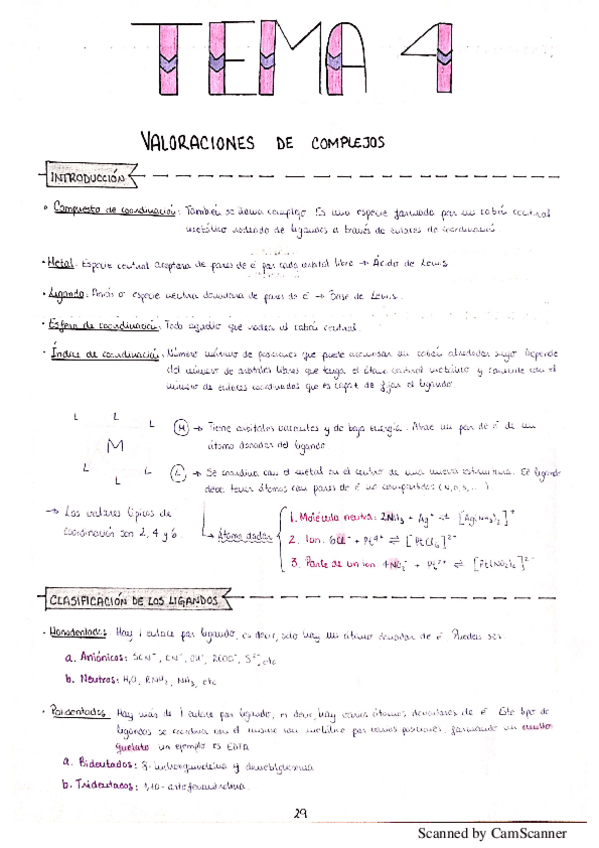 TEMA 4
VALORACIONES DE COMPLEJOS
INTRODUCCIÓN
• Compuesto de coordinación: También se llama complejo. Es una especie formada por un catión central
metálico rodeado de ligandos a través de enlaces de coordinación.
• Metal: Especie central aceptora de pares de e⁻ por cada orbital libre → Ácido de Lewis
• Ligando: Anión o especie neutra donadora de pares de e⁻ → Base de Lewis.
• Esfera de coordinación: Todo aquello que rodea al catión central.
• Índice de coordinación: Número máximo de posiciones que puede acomodar un catión alrededor suyo. Depende
del número de orbitales libres que tenga el central metálico y coincide con el
número de enlaces coordinados que es capaz de fijar el ligando.
L L L
M
L L L
(M) → Tiene orbitales vacantes y de baja energía. Atrae un par de e⁻ de un
átomo donador del ligando.
(L) → Se coordina con el metal en el centro de una nueva estructura. El ligando
debe tener átomos con pares de e⁻ no compartidos (N, O, S, ...)
→ Los valores típicos de
coordinación son 2, 4 y 6.
Átomo dador
1. Molécula neutra: 2NH₃ + Ag⁺ ⇌ [Ag(NH₃)₂]⁺
2. Ion: 6Cl⁻ + Pt⁴⁺ ⇌ [PtCl₆]²⁻
3. Parte de un ion: 4NO₂⁻ + Pt²⁺ ⇌ [Pt(NO₂)₄]²⁻
CLASIFICACIÓN DE LOS LIGANDOS
• Monodentados: Hay 1 enlace por ligando, es decir, solo hay un átomo donador de e⁻. Pueden ser:
a. Aniónicos: SCN⁻, CN⁻, OH⁻, RCOO⁻, S²⁻, etc
b. Neutros: H₂O, RNH₂, NH₃, etc
• Polidentados: Hay más de 1 enlace por ligando, es decir, hay varios átomos donadores de e⁻. Este tipo de
ligandos se coordina con el mismo ion metálico por varias posiciones, formando un anillo
quelato un ejemplo es EDTA
a. Bidentados: 8-hidroxiquinoleína y dimetilglioxima
b. Tridentados: 1,10-ortofenantrolina.
29
Scanned by CamScanner